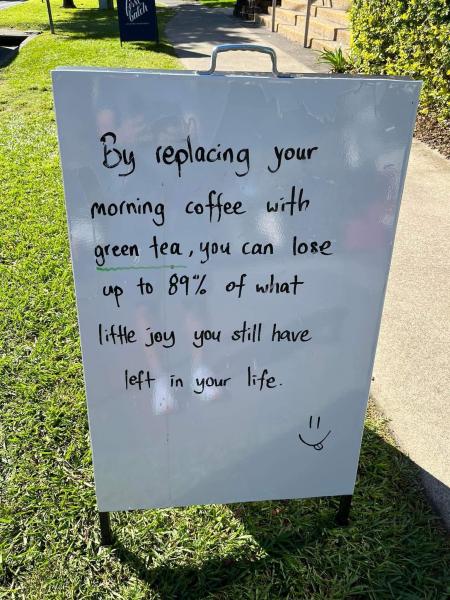 Batch
By replacing your
morning coffee with
green tea, you can lose
up to 89% of what
little joy you still have
left in your life.